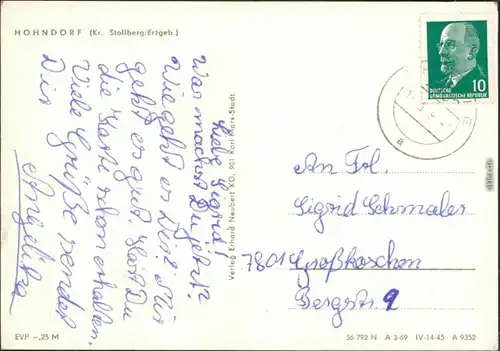 HOHNDORF (Kr. Stollberg/Erzgeb.)
Liebe Sigrid!
Was machst Du jetzt?
Wie geht es Dir? Mir
geht es gut. Hast Du
die Karte schon erhalten.
Viele Grüße sendet
Dir
Angelika
Verlag Erhard Neubert KG, 901 Karl-Marx-Stadt
10
DEUTSCHE
DEMOKRATISCHE REPUBLIK
a
An Frl.
Sigrid Schmaler
7801 Großkoschen
Bergstr. 9
EVP –,25 M
36 792 N A 3-69 IV-14-45 A 9352